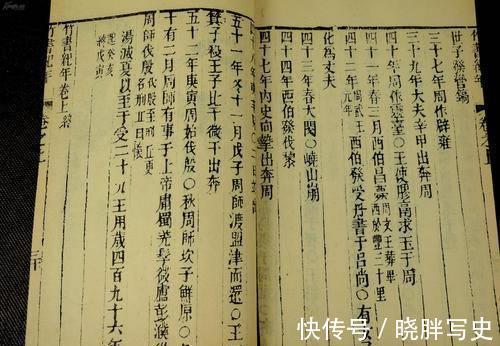 世子發營鎬
三十七年周作辟雍
三十九年大夫辛甲出奔周
四十年周作靈臺○王使膠鬲求玉于周
四十一年春三月西伯昌薨
四十二年西伯發受丹書于呂尚○有女子
化為丈夫
四十三年春大閱○嶢山崩
四十四年西伯發伐黎
四十七年內史向摯出奔周
五十一年冬十一月戊子周師渡盟津而還○王
箕子殺王子比干微子出奔
五十二年庚寅周師伐殷○秋周師次于鮮原○冬
十有二月周師有事于上帝庸蜀羌髳微盧彭濮
周師伐殷
湯滅夏以至于受二十九王用歲四百九十六年
竹書紀年卷上終
快传号／晓胖写史